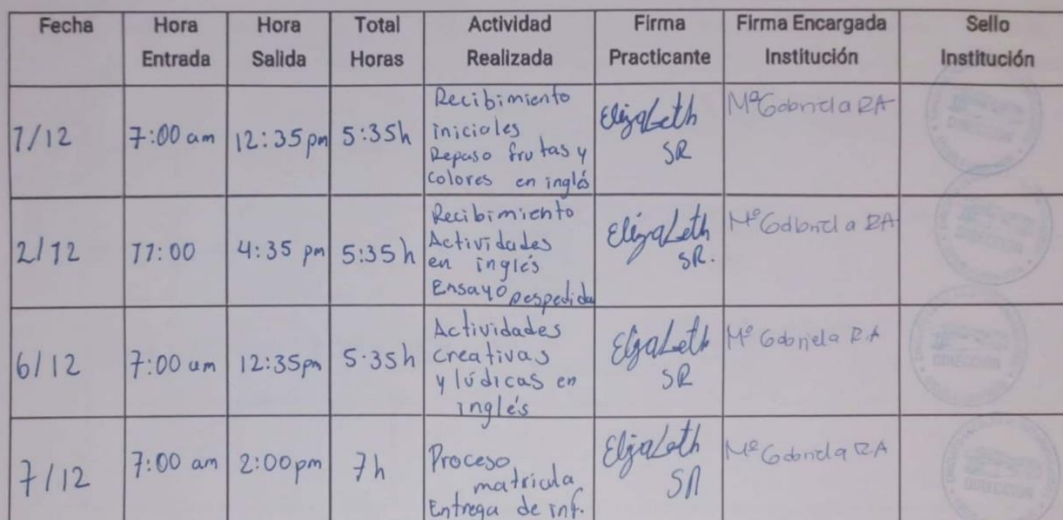 Fecha Hora Entrada Hora Salida Total Horas Actividad Realizada Firma Practicante Firma Encargada Institución Sello Institución
1/12 7:00 am 12:35 pm 5:35h Recibimiento
iniciales
Repaso frutas y
colores en inglés
Elizabeth
SR
Mª Gabriela RA
DIRECCION
2/12 11:00 4:35 pm 5:35h Recibimiento
Actividades
en inglés
Ensayo Despedida
Elizabeth
SR.
Mª Gabriela RA
6/12 7:00 am 12:35pm 5:35h Actividades
creativas
y lúdicas en
inglés
Elizabeth
SR
Mª Gabriela RA
DIRECCION
7/12 7:00 am 2:00pm 7h Proceso
matricula
Entrega de inf.
Elizabeth
SR
Mª Gabriela RA
DIRECCION